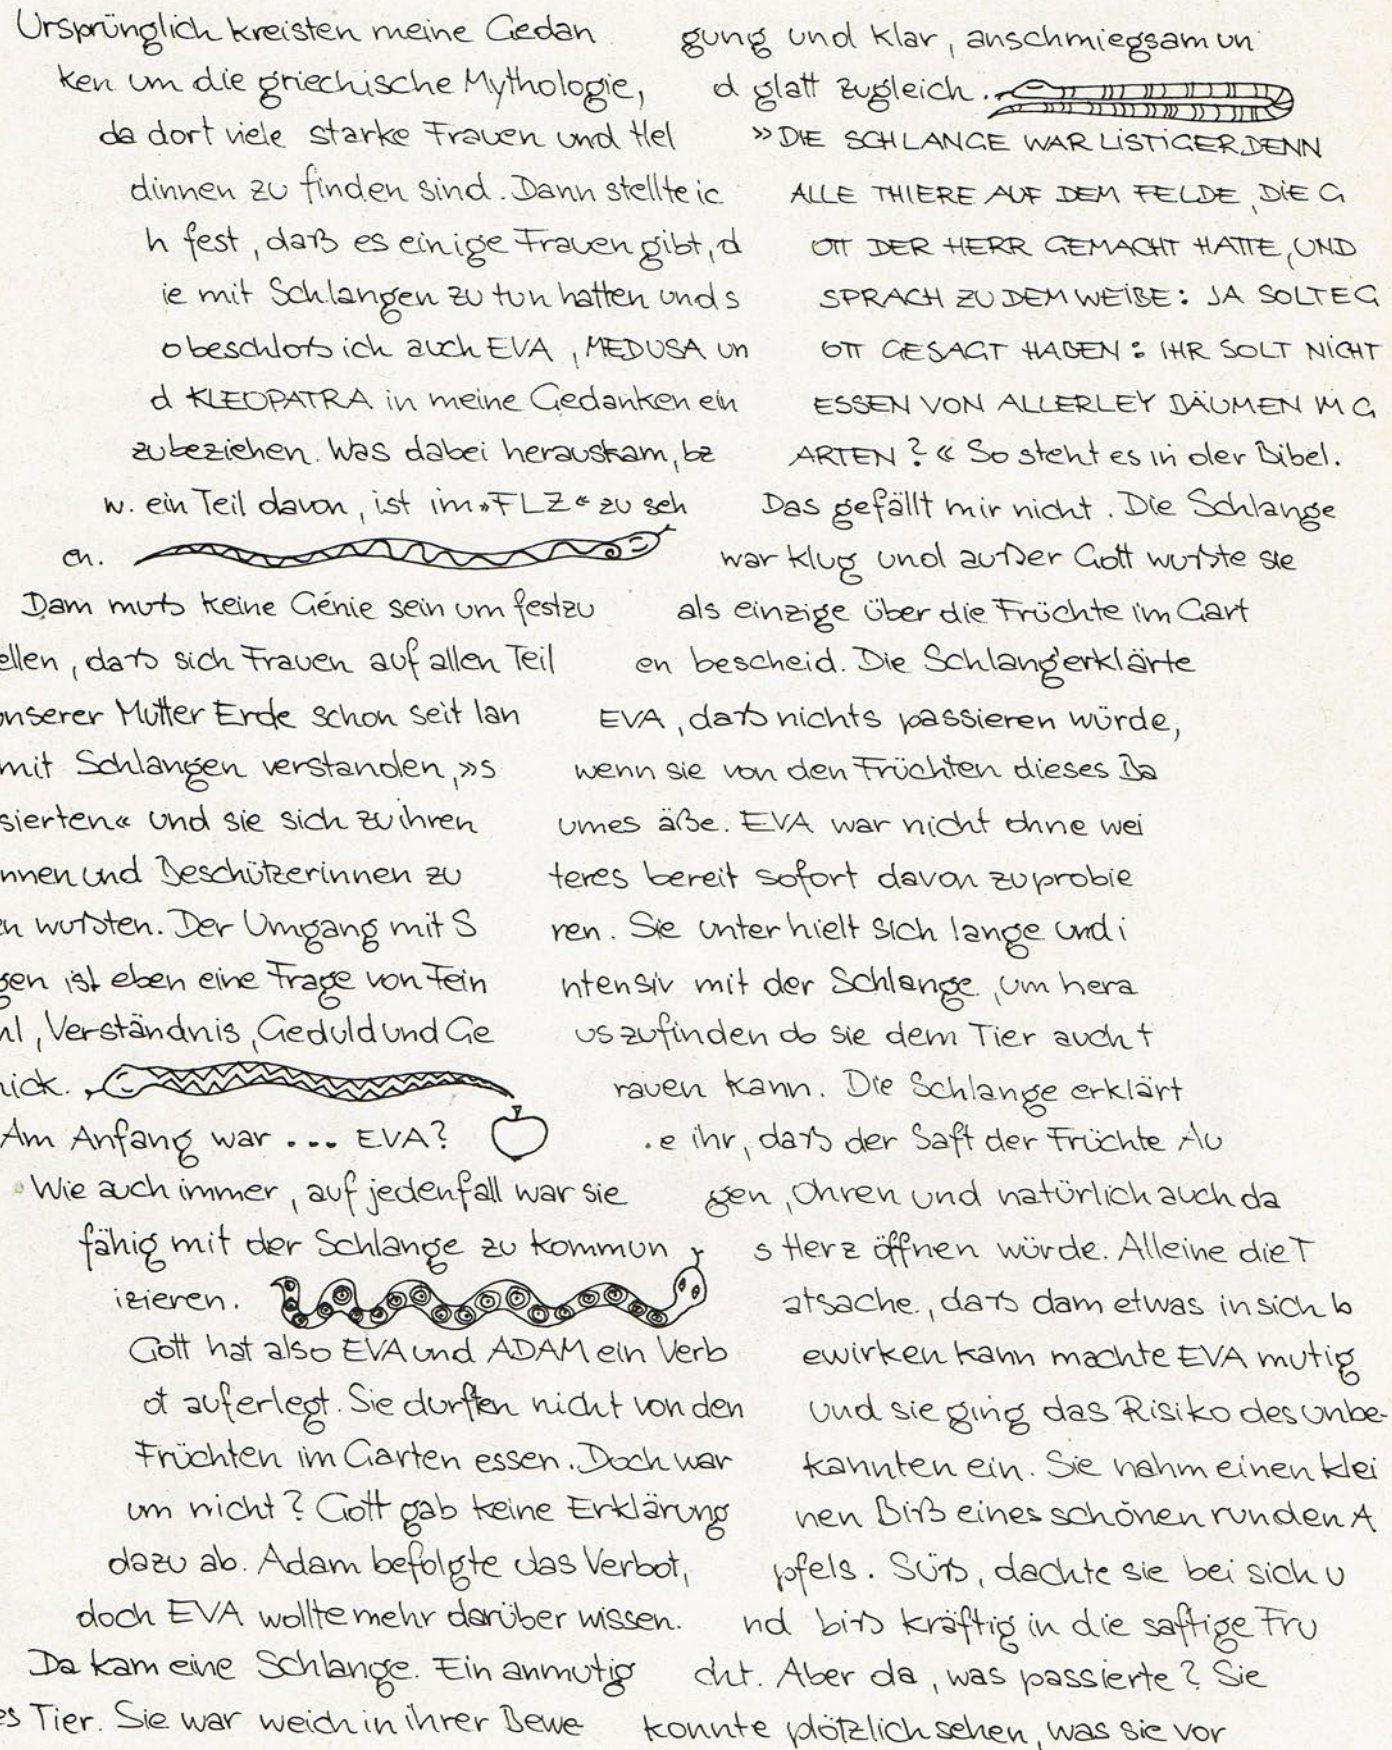 Ursprünglich kreisten meine Gedan
ken um die griechische Mythologie,
da dort viele starke Frauen und Hel
dinnen zu finden sind. Dann stellte ic
h fest, daß es einige Frauen gibt, d
ie mit Schlangen zu tun hatten und s
o beschloß ich auch EVA, MEDUSA un
d KLEOPATRA in meine Gedanken ein
zubeziehen. Was dabei herauskam, bz
w. ein Teil davon, ist im »FLZ« zu seh
en.
Dam muß keine Génie sein um festzu
ellen, daß sich Frauen auf allen Teil
unserer Mutter Erde schon seit lan
mit Schlangen verstanden, »s
sierten« und sie sich zu ihren
nnen und Beschützerinnen zu
en wußten. Der Umgang mit S
gen ist eben eine Frage von Fein
hl, Verständnis, Geduld und Ge
hick.
Am Anfang war ... EVA?
Wie auch immer, auf jedenfall war sie
fähig mit der Schlange zu kommun
izieren.
Gott hat also EVA und ADAM ein Verb
ot auferlegt. Sie durften nicht von den
Früchten im Garten essen. Doch war
um nicht? Gott gab keine Erklärung
dazu ab. Adam befolgte das Verbot,
doch EVA wollte mehr darüber wissen.
Da kam eine Schlange. Ein anmutig
es Tier. Sie war weich in ihrer Bewe
gung und klar, anschmiegsam un
d glatt zugleich.
»DIE SCHLANGE WAR LISTIGER DENN
ALLE THIERE AUF DEM FELDE, DIE G
OTT DER HERR GEMACHT HATTE, UND
SPRACH ZU DEM WEIBE: JA SOLTE G
OTT GESAGT HABEN: IHR SOLT NICHT
ESSEN VON ALLERLEY BÄUMEN IM G
ARTEN?« So steht es in der Bibel.
Das gefällt mir nicht. Die Schlange
war klug und außer Gott wußte sie
als einzige über die Früchte im Gart
en bescheid. Die Schlang'erklärte
EVA, daß nichts passieren würde,
wenn sie von den Früchten dieses Ba
umes äße. EVA war nicht ohne wei
teres bereit sofort davon zu probie
ren. Sie unterhielt sich lange und i
ntensiv mit der Schlange, um hera
uszufinden ob sie dem Tier auch t
rauen kann. Die Schlange erklärt
e ihr, daß der Saft der Früchte Au
gen, Ohren und natürlich auch da
s Herz öffnen würde. Alleine die T
atsache, daß dam etwas in sich b
ewirken kann machte EVA mutig
und sie ging das Risiko des unbe-
kannten ein. Sie nahm einen klei
nen Biß eines schönen runden A
pfels. Süß, dachte sie bei sich u
nd biß kräftig in die saftige Fru
cht. Aber da, was passierte? Sie
konnte plötzlich sehen, was sie vor